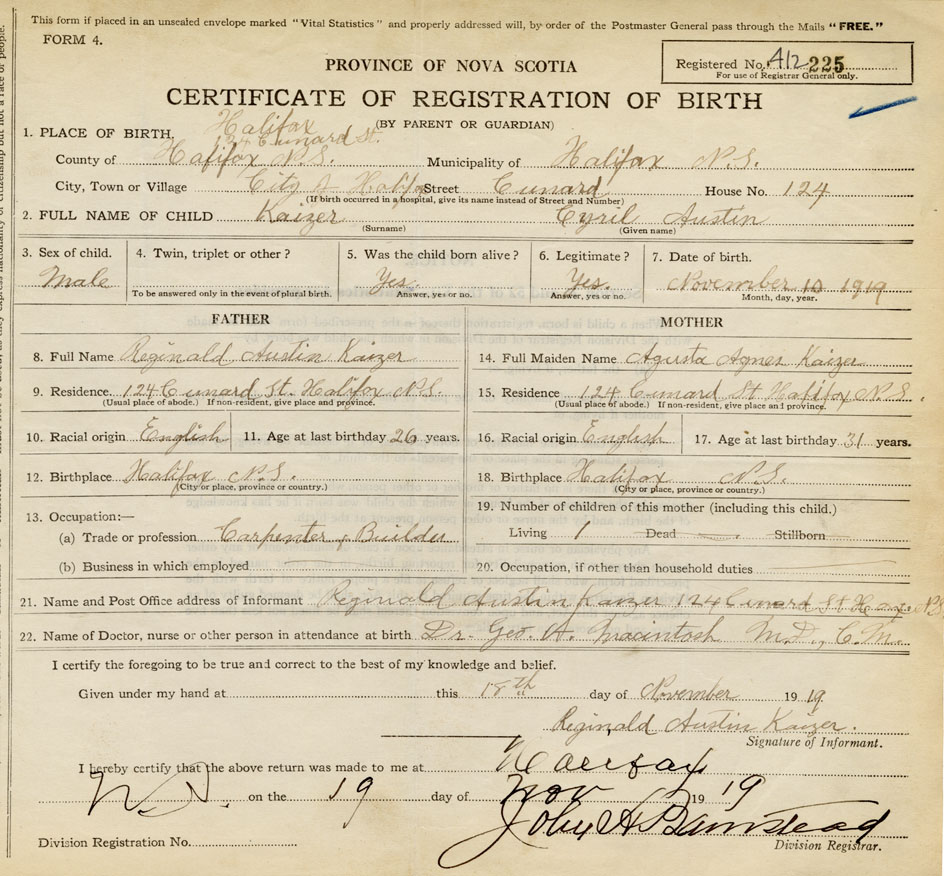 This form if placed in an unsealed envelope marked "Vital Statistics" and properly addressed will, by order of the Postmaster General pass through the Mails "FREE."
FORM 4.
Registered No. A12 225
For use of Registrar General only.
PROVINCE OF NOVA SCOTIA
CERTIFICATE OF REGISTRATION OF BIRTH
(BY PARENT OR GUARDIAN)
Halifax
1. PLACE OF BIRTH, 124 Cunard St.
County of Halifax N.S. Municipality of Halifax N.S.
City, Town or Village City of Halifax Street Cunard House No. 124
(If birth occurred in a hospital, give its name instead of Street and Number)
2. FULL NAME OF CHILD Kaizer Cyril Austin
(Surname) (Given name)
3. Sex of child. 4. Twin, triplet or other? 5. Was the child born alive? 6. Legitimate? 7. Date of birth.
Male Yes. Yes. November 10 1919
To be answered only in the event of plural birth. Answer, yes or no. Answer, yes or no. Month, day, year.
FATHER
8. Full Name Reginald Austin Kaizer
9. Residence. 124 Cunard St. Halifax N.S.
(Usual place of abode.) If non-resident, give place and province.
10. Racial origin English 11. Age at last birthday 26 years.
12. Birthplace Halifax N.S.
(City or place, province or country.)
13. Occupation:—
(a) Trade or profession Carpenter & Builder
(b) Business in which employed
MOTHER
14. Full Maiden Name Agusta Agnes Kaizer
15. Residence 124 Cunard St Halifax N.S.
(Usual place of abode.) If non-resident, give place and province.
16. Racial origin English 17. Age at last birthday 31 years.
18. Birthplace Halifax N.S.
(City or place, province or country.)
19. Number of children of this mother (including this child.)
Living 1 Dead Stillborn
20. Occupation, if other than household duties
21. Name and Post Office address of Informant Reginald Austin Kaizer 124 Cunard St Hfax. N.S.
22. Name of Doctor, nurse or other person in attendance at birth Dr. Geo. A. Macintosh M.D., C.M.
I certify the foregoing to be true and correct to the best of my knowledge and belief.
Given under my hand at this 18th day of November 1919.
Reginald Austin Kaizer.
Signature of Informant.
I hereby certify that the above return was made to me at Halifax
N.S. on the 19 day of Nov 1919
John A Barnstead
Division Registration No. Division Registrar.